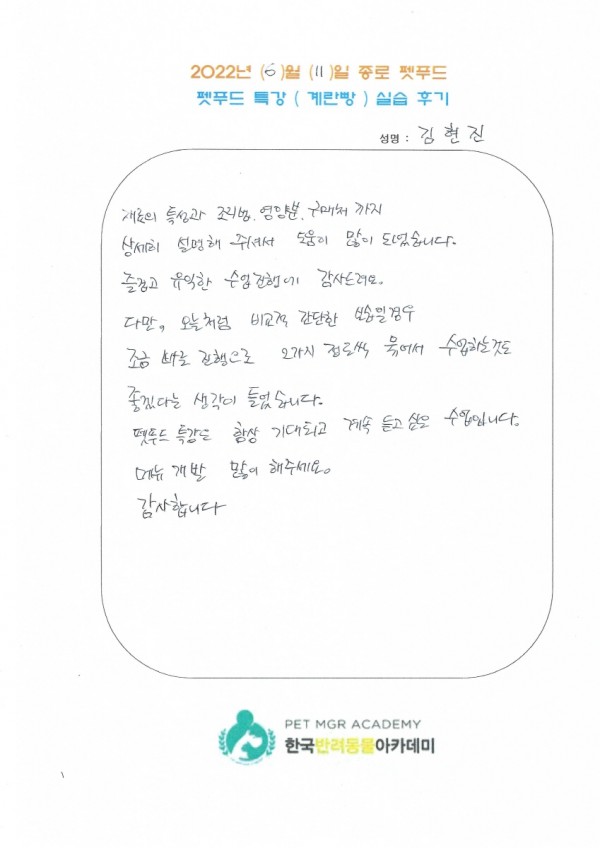 2022년 (6)월 (11)일 종로 펫푸드
펫푸드 특강 ( 계란빵 ) 실습 후기
성명 : 김현진
재료의 특성과 조리법, 영양분, 구매처 까지
상세히 설명해 주셔서 도움이 많이 되었습니다.
즐겁고 유익한 수업진행에 감사드려요.
다만, 오늘처럼 비교적 간단한 실습일경우
조금 빠른 진행으로 2가지 정도씩 묶어서 수업하는것도
좋겠다는 생각이 들었습니다.
펫푸드 특강은 항상 기대되고 계속 듣고 싶은 수업입니다.
메뉴 개발 많이 해주세요.
감사합니다
PET MGR ACADEMY
한국반려동물아카데미